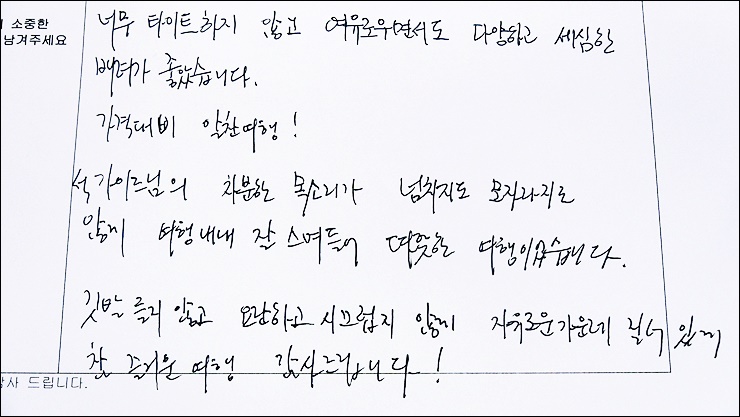 소중한
남겨주세요
너무 타이트하지 않고 여유로우면서도 다양하고 세심한
배려가 좋았습니다.
가격대비 알찬여행!
석 가이드님의 차분한 목소리가 넘치지도 모자라지도
않게 여행내내 잘 스며들어 따뜻한 여행이었습니다.
깃발 들지 않고 요란하고 시끄럽지 않게 자유로운가운데 질서 있게
참 즐거운 여행 감사드립니다!
사 드립니다.